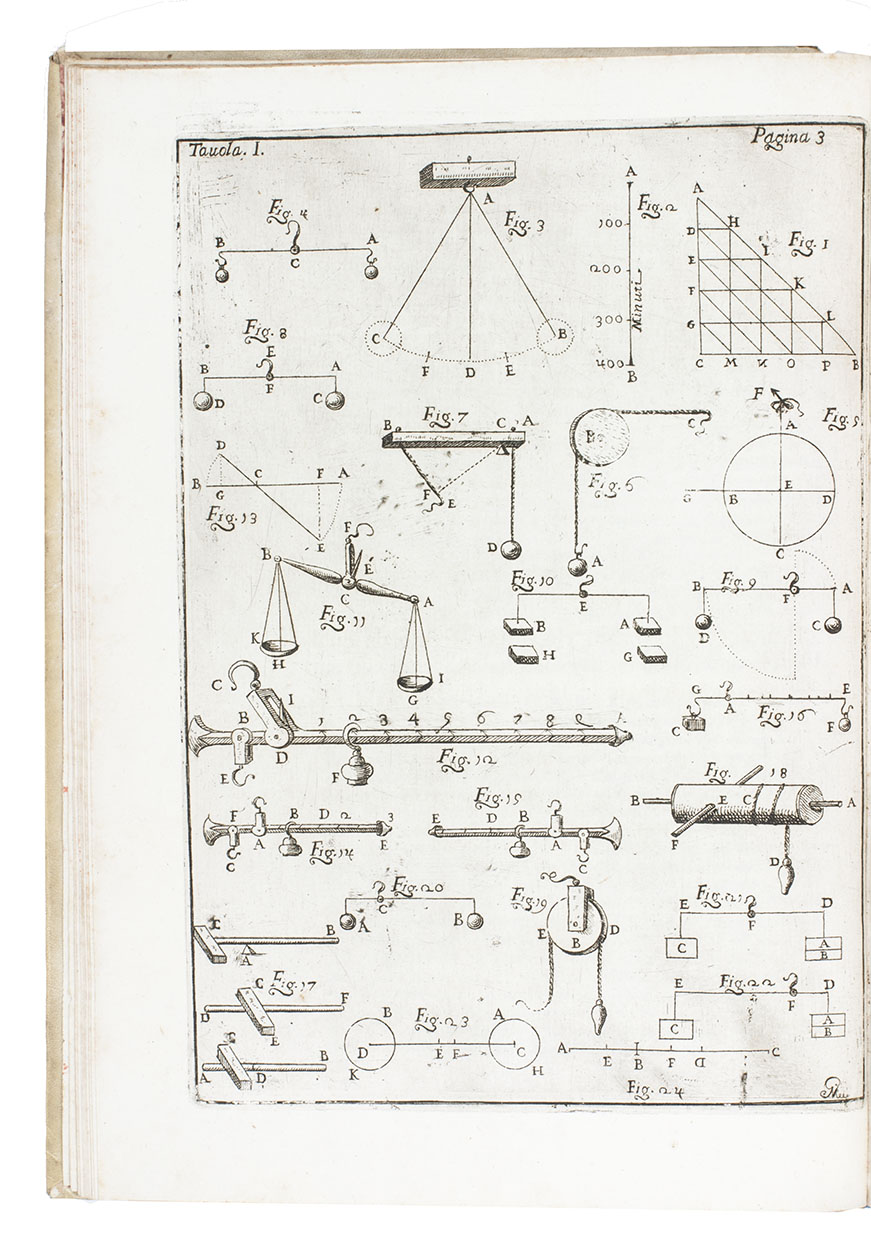 Tauola. I.
Pagina 3
Fig. 4
B
A
C
A
Fig. 3
C
B
F
D
E
A
Fig. 2
100
200
300
400
Minuti
B
A
Fig. 1
D
H
E
I
F
K
G
L
C
M
N
O
P
B
Fig. 8
E
B
A
F
D
C
Fig. 7
B
C
A
F
E
D
B
C
Fig. 6
A
F
Fig. 5
A
E
G
B
D
C
D
B
G
C
F
A
Fig. 13
E
F
B
E
C
A
Fig. 11
K
H
I
G
Fig. 10
E
B
A
H
G
Fig. 9
B
F
A
D
C
G
E
A
Fig. 16
C
F
C
I
B
1
2
3
4
5
6
7
8
9
A
D
E
F
Fig. 12
Fig. 18
B
E
C
A
F
D
F
B
D
2
3
A
E
C
Fig. 14
Fig. 15
E
D
B
A
C
Fig. 20
C
A
B
Fig. 19
E
B
D
Fig. 21
E
D
F
C
A
B
C
B
A
C
Fig. 17
D
F
E
C
A
D
B
Fig. 22
E
D
F
C
A
B
B
Fig. 23
A
D
E
F
C
K
H
A
E
B
F
D
C
Fig. 24